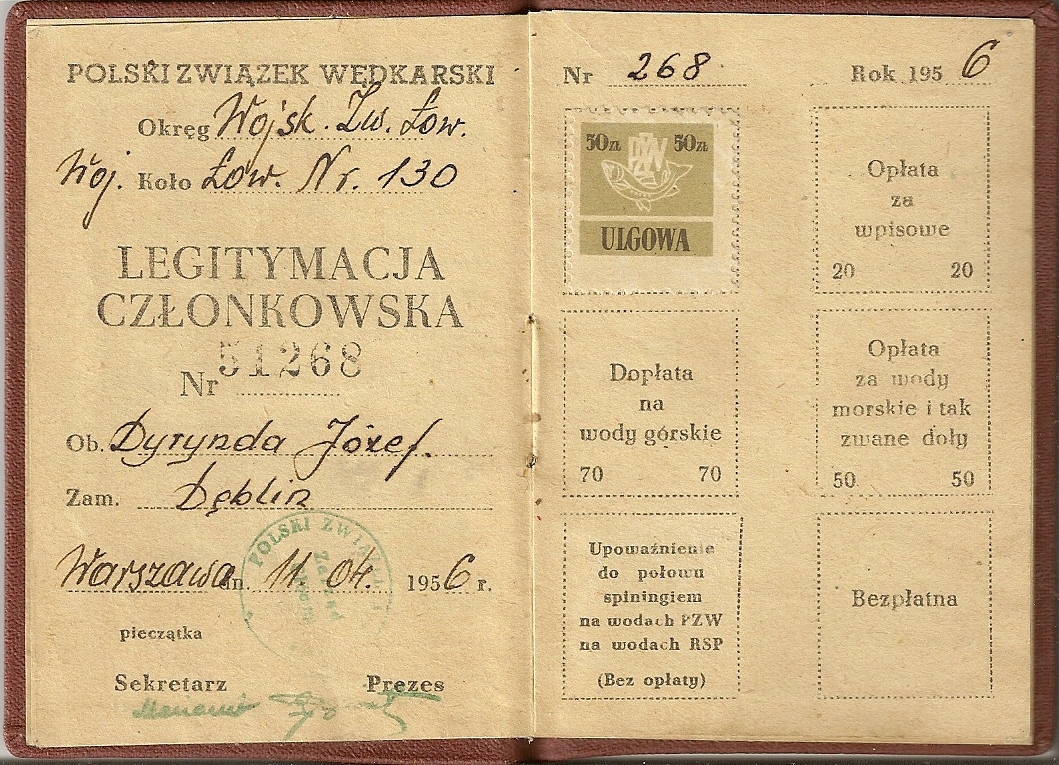 POLSKI ZWIĄZEK WĘDKARSKI
Okręg Wojsk. Zw. Łow.
Woj. Koło Łow. Nr. 130
LEGITYMACJA
CZŁONKOWSKA
Nr 51268
Ob. Dyrynda Józef.
Zam. Dęblin
Warszawa dn. 11. 04. 1956 r.
POLSKI ZWIĄ
pieczątka
Sekretarz Prezes
Nr 268
Rok 1956
50zł PZW 50zł
ULGOWA
Opłata
za
wpisowe
20 20
Dopłata
na
wody górskie
70 70
Opłata
za wody
morskie i tak
zwane doły
50 50
Upoważnienie
do połowu
spiningiem
na wodach PZW
na wodach RSP
(Bez opłaty)
Bezpłatna